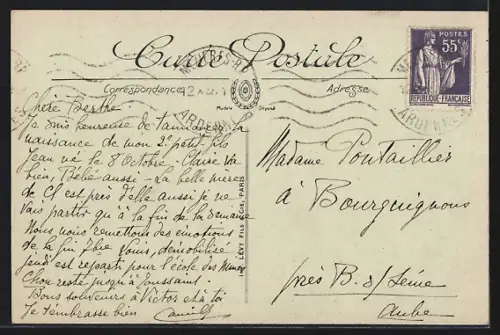 Carte Postale
MÉZIÈRES-RP
ARDENNES
POSTES
55c
RÉPUBLIQUE-FRANÇAISE
Correspondance
Modèle Déposé
Adresse
LÉVY FILS & Cie, PARIS
Chère Berthe.
Je suis heureuse de t'annoncer la
naissance de mon 2e petit-fils
Jean né le 8 Octobre. Claire va
bien, Bébé aussi - La belle mère
de Cl est près d'elle aussi je ne
vais partir qu'à la fin de la semaine
Nous nous remettons des émotions
de la fin 7bre Louis, démobilisé
jeudi est reparti pour l'école des Mines
Chou reste jusqu'à Toussaint.
Bons souvenirs à Victor et à toi
Je t'embrasse bien
Madame Pontaillier
à Bourguignons
près B. s/ Seine
Aube